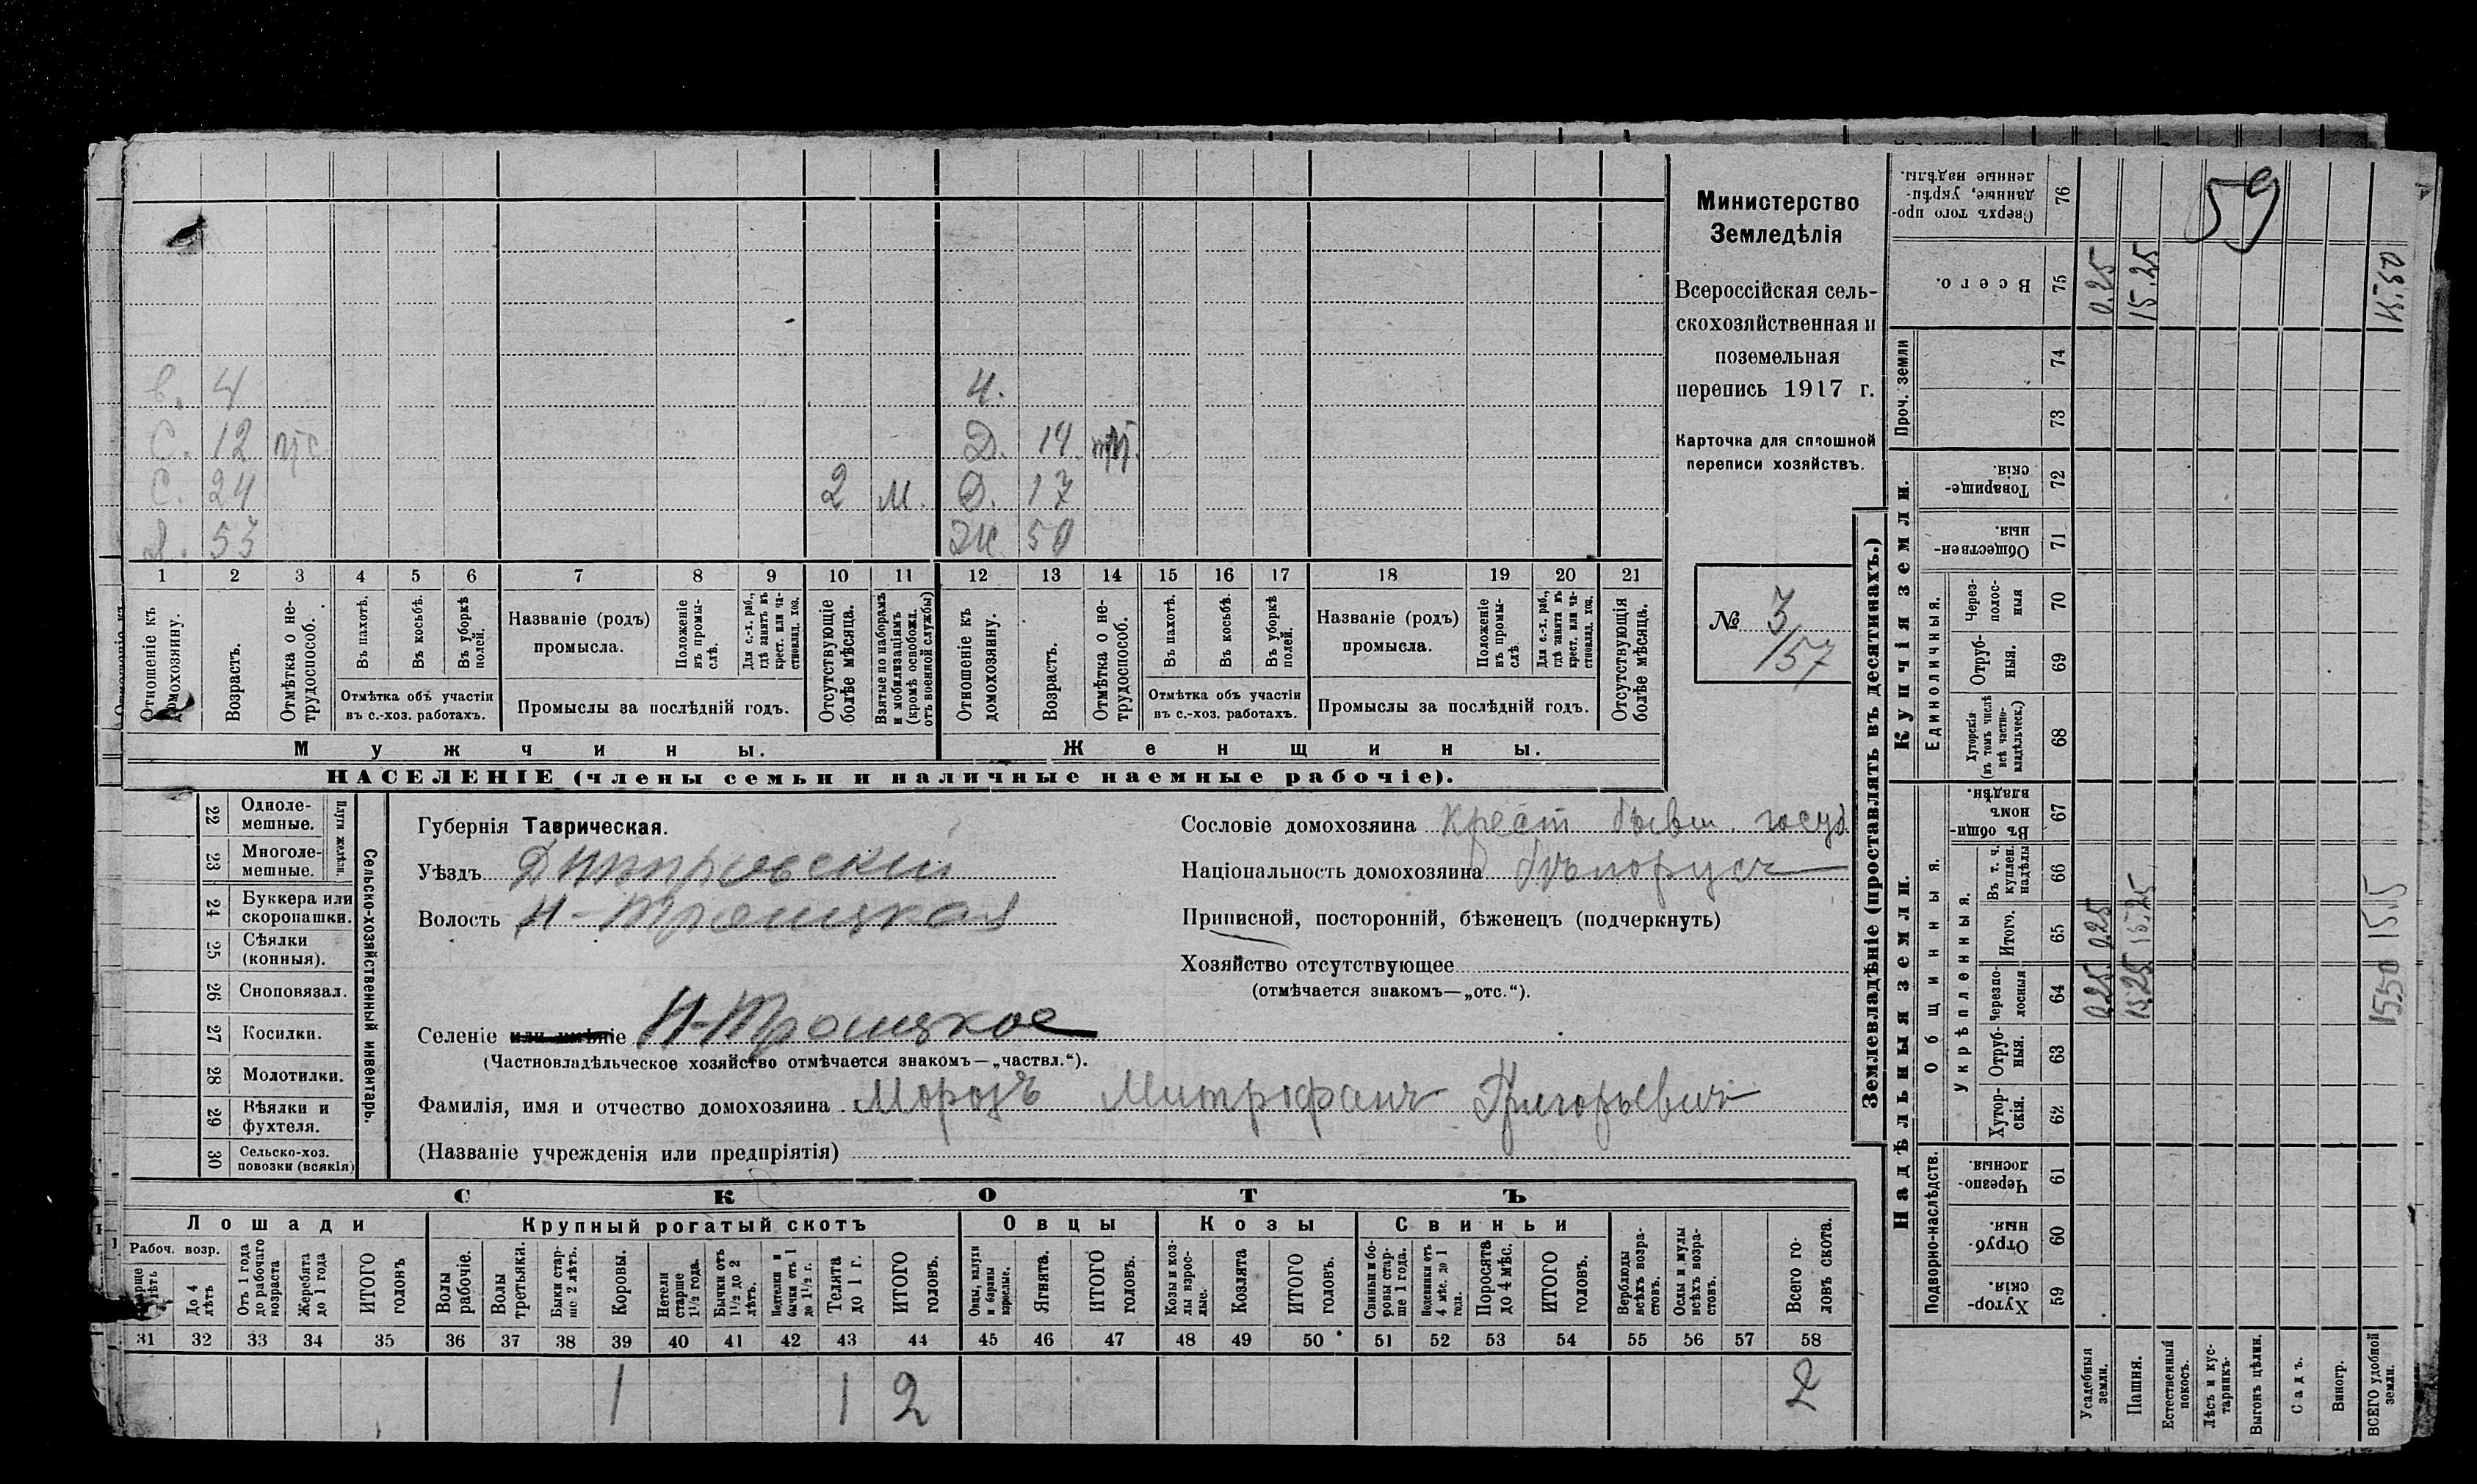 Министерство
Земледѣлія
Всероссійская сель-
скохозяйственная и
поземельная
перепись 1917 г.
Карточка для сплошной
переписи хозяйствъ.
№ 3/157
59
4 Ч.
С. 12 п/с Д. 14 п/т.
С. 24 2 М. Д. 17
53 Ж 50
1 2 3 4 5 6 7 8 9 10 11 12 13 14 15 16 17 18 19 20 21
Отношеніе къ домохозяину.
Возрастъ.
Отмѣтка о не-
трудоспособ.
Въ пахотѣ.
Въ косьбѣ.
Въ уборкѣ
полей.
Отмѣтка объ участіи
въ с.-хоз. работахъ.
Названіе (родъ)
промысла.
Положеніе
въ промы-
слѣ.
Для с.-х. раб.,
гдѣ занятъ въ
крест. или ча-
стновлад. хоз.
Промыслы за послѣдній годъ.
Отсутствующіе
болѣе мѣсяца.
Взятые по наборамъ
и мобилизаціямъ
(кромѣ освобожд.
отъ военной службы)
Отношеніе къ
домохозяину.
Возрастъ.
Отмѣтка о не-
трудоспособ.
Въ пахотѣ.
Въ косьбѣ.
Въ уборкѣ
полей.
Отмѣтка объ участіи
въ с.-хоз. работахъ.
Названіе (родъ)
промысла.
Положеніе
въ промы-
слѣ.
Для с.-х. раб.,
гдѣ занята въ
крест. или ча-
стновлад. хоз.
Промыслы за послѣдній годъ.
Отсутствующія
болѣе мѣсяца.
Мужчины. Женщины.
НАСЕЛЕНІЕ (члены семьи и наличные наемные рабочіе).
Сельско-хозяйственный инвентарь.
Плуги желѣзн.
22 Одноле-
мешные.
23 Многоле-
мешные.
24 Буккера или
скоропашки.
25 Сѣялки
(конныя).
26 Сноповязал.
27 Косилки.
28 Молотилки.
29 Вѣялки и
фухтеля.
30 Сельско-хоз.
повозки (всякія)
Губернія Таврическая.
Уѣздъ Днѣпровскій
Волость Н-Троицкая
Селеніе или имѣніе Н-Троицкое
(Частновладѣльческое хозяйство отмѣчается знакомъ—„частвл.“).
Сословіе домохозяина крест бывш. госуд
Національность домохозяина бѣлорусъ
Приписной, посторонній, бѣженецъ (подчеркнуть)
Хозяйство отсутствующее
(отмѣчается знакомъ—„отс.“).
Фамилія, имя и отчество домохозяина Морозъ Митрофанъ Григорьевичъ
(Названіе учрежденія или предпріятія)
СКОТЪ
Лошади Крупный рогатый скотъ Овцы Козы Свиньи
Рабоч. возр.
До 4
лѣтъ
Отъ 1 года
до рабочаго
возраста
Жеребята
до 1 года
ИТОГО
головъ
Волы
рабочіе.
Волы
третьяки.
Быки стар-
ше 2 лѣтъ.
Коровы.
Нетели
старше
1½ года.
Бычки отъ
1½ до 2
лѣтъ.
Нетелки и
бычки отъ 1
до 1½ г.
Телята
до 1 г.
ИТОГО
головъ.
Овцы, валухи
и бараны
взрослые.
Ягнята.
ИТОГО
головъ.
Козы и коз-
лы взрос-
лые.
Козлята
ИТОГО
головъ.
Свиньи и бо-
ровы стар-
ше 1 года.
Подсвинки отъ
4 мѣс. до 1
года.
Поросята
до 4 мѣс.
ИТОГО
головъ.
Верблюды
всѣхъ возра-
стовъ.
Ослы и мулы
всѣхъ возра-
стовъ.
Всего го-
ловъ скота.
31 32 33 34 35 36 37 38 39 40 41 42 43 44 45 46 47 48 49 50 51 52 53 54 55 56 57 58
1 1 2 2
Землевладѣніе (проставлять въ десятинахъ.)
Надѣльныя земли. Купчія земли. Проч. земли
Подворно-наслѣдств.
Общинныя.
Укрѣпленныя.
Единоличныя.
59 Хутор-
скія.
60 Отруб-
ныя.
61 Черезпо-
лосныя.
62 Хутор-
скія.
63 Отруб-
ныя.
64 Черезпо-
лосныя
65 Итого.
66 Въ т. ч.
куплен.
надѣлы
67 Въ общин-
номъ
владѣн.
68 Хуторскія
(въ томъ числѣ
всѣ частно-
владѣльческ.)
69 Отруб-
ныя.
70 Через-
полос-
ныя
71 Обществен-
ныя.
72 Товарище-
скія.
73
74
75 Всего.
76 Сверхъ того про-
данные, укрѣп-
ленные надѣлы.
Усадебныя
земли. 0.25 0.25 0.25
Пашня. 15.25 15.25 15.25
Естественный
покосъ.
Лѣсъ и кус-
тарникъ.
Выгонъ цѣлин.
Садъ.
Виногр.
ВСЕГО удобной
земли. 15.50 15.50